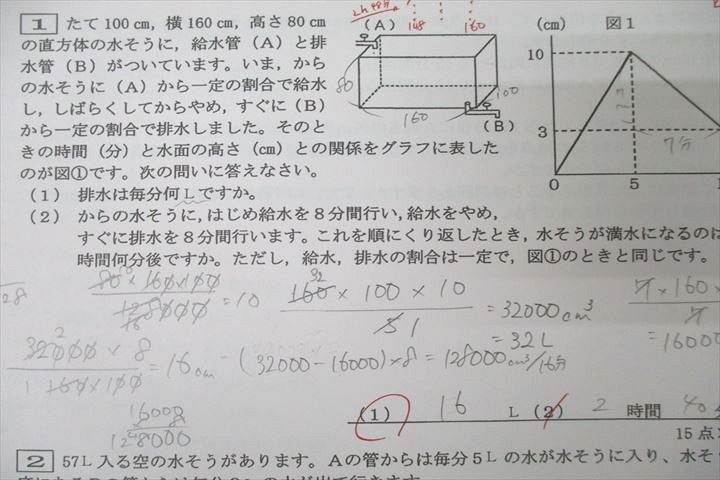 1 たて100cm，横160cm，高さ80cm
の直方体の水そうに，給水管（A）と排
水管（B）がついています。いま，から
の水そうに（A）から一定の割合で給水
し，しばらくしてからやめ，すぐに（B）
から一定の割合で排水しました。そのと
きの時間（分）と水面の高さ（cm）との関係をグラフに表した
のが図①です。次の問いに答えなさい。
（1） 排水は毎分何Lですか。
（2） からの水そうに，はじめ給水を8分間行い，給水をやめ，
すぐに排水を8分間行います。これを順にくり返したとき，水そうが満水になるのは
時間何分後ですか。ただし，給水，排水の割合は一定で，図①のときと同じです。
（A）
148 160
80
160
100
（B）
（cm） 図1
10
3
0 5 1
7分
28
80×160×100
128000
16
=10
32
160×100×10
5 1
=32000cm³
=32L
7×160×
7
=16000
2
32000×8
160×100
=16cm
(32000-16000)×8=128000cm³/16分
16000
8
128000
（1） 16 L （2） 2 時間 40 分
15点
2 57L入る空の水そうがあります。Aの管からは毎分5Lの水が水そうに入り，水そ